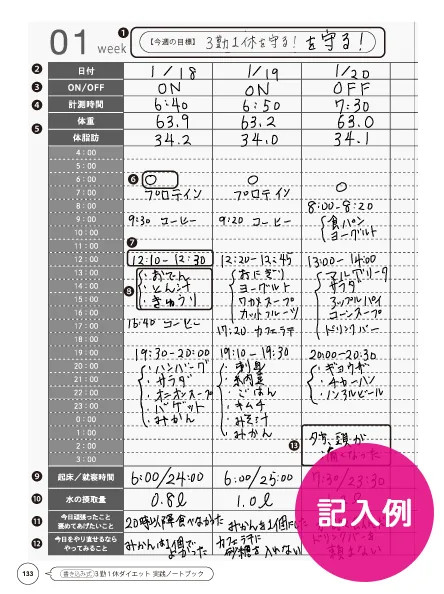 01 week
1
【今週の目標】 3勤1休を守る! を守る!
2 日付 1/18 1/19 1/20
3 ON/OFF ON ON OFF
4 計測時間 6:40 6:50 7:30
5 体重 63.9 63.2 63.0
体脂肪 34.2 34.0 34.1
4:00
5:00
6:00 6 ○ ○ ○
7:00 プロテイン プロテイン
8:00 8:00-8:20
9:00 9:30 コーヒー 9:20 コーヒー 食パン
10:00 ヨーグルト
11:00 7
12:00 12:10-12:30 12:20-12:45 13:00-14:00
13:00 ・おでん おにぎり マルゲリータ
14:00 8 ・とん汁 ヨーグルト サラダ
15:00 ・きゅうり ワカメスープ アップルパイ
16:00 カットフルーツ コーンスープ
17:00 16:40 コーヒー 17:20 カフェラテ ドリンクバー
18:00
19:00 19:30-20:00 19:10-19:30 20:00-20:30
20:00 ・ハンバーグ ・刺身 ・ギョウザ
21:00 ・サラダ ・焼肉 ・チャーハン
22:00 ・オニオンスープ ・ごはん ・ノンアルビール
23:00 ・バゲット ・キムチ
0:00 ・みかん ・みそ汁
1:00 ・みかん
2:00 13 夕方、頭が
3:00 痛くなった
9 起床/就寝時間 6:00/24:00 6:00/25:00 7:30/23:30
10 水の摂取量 0.8ℓ 1.0ℓ
11 今日頑張ったこと 褒めてあげたいこと 20時以降食べなかった みかんを1個にした
12 今日をやり直せるなら やってみること みかんは1個でよかった カフェラテに砂糖を入れない ドリンクバーを頼まない
記入例
133 書き込み式 3勤1休ダイエット 実践ノートブック